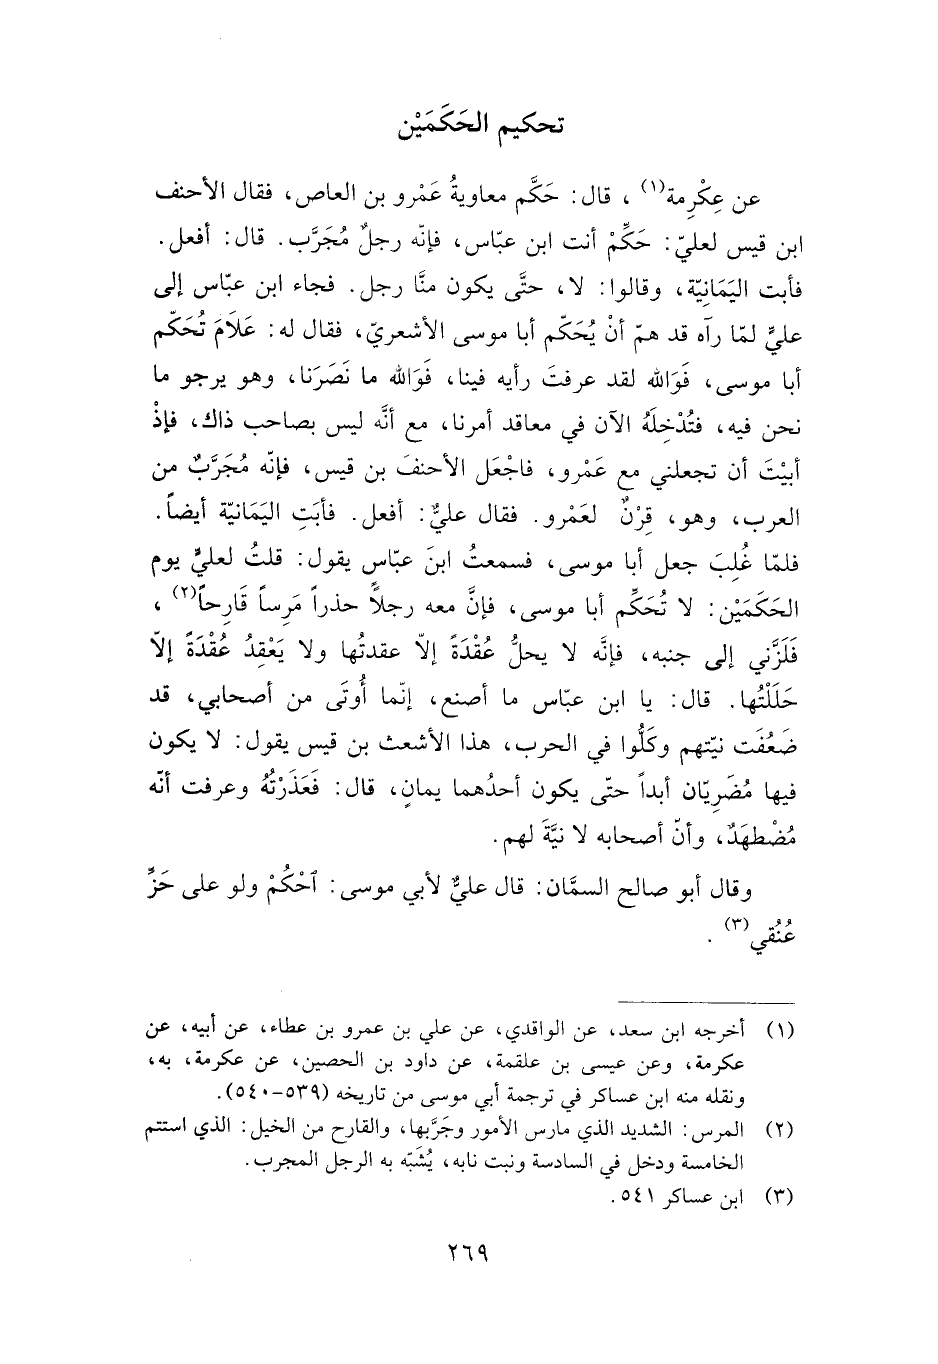 تحكيم الحَكَمَيْن
عن عِكْرِمة(١) ، قال: حَكَّم معاويةُ عَمْرو بن العاص، فقال الأحنف
ابن قيس لعليّ: حَكِّمْ أنت ابن عبّاس، فإنّه رجلٌ مُجَرَّب. قال: أفعل.
فأبت اليَمَانِيّة، وقالوا: لا، حتَّى يكون منَّا رجل. فجاء ابن عبّاس إلى
عليٍّ لمّا رآه قد همّ أنْ يُحَكّم أبا موسى الأشعريّ، فقال له: عَلَامَ تُحَكّم
أبا موسى، فَوَالله لقد عرفتَ رأيه فينا، فَوَالله ما نَصَرَنا، وهو يرجو ما
نحن فيه، فتُدْخِلَهُ الآن في معاقد أمرنا، مع أنَّه ليس بصاحب ذاك، فإذْ
أبيْتَ أن تجعلني مع عَمْرو، فاجْعَل الأحنفَ بن قيس، فإنّه مُجَرَّبٌ من
العرب، وهو، قِرْنٌ لعَمْرو. فقال عليٌّ: أفعل. فأبَتِ اليَمَانيّة أيضاً.
فلمّا غُلِبَ جعل أبا موسى، فسمعتُ ابنَ عبّاس يقول: قلتُ لعليٍّ يوم
الحَكَمَيْن: لا تُحَكِّم أبا موسى، فإنَّ معه رجلاً حذراً مَرِساً قَارِحاً(٢) ،
فَلَزَّني إلى جنبه، فإنَّه لا يحلُّ عُقْدَةً إلاّ عقدتُها ولا يَعْقِدُ عُقْدَةً إلاّ
حَلَلْتُها. قال: يا ابن عبّاس ما أصنع، إنّما أُوتَى من أصحابي، قد
ضَعُفَت نيّتهم وكَلُّوا في الحرب، هذا الأشعث بن قيس يقول: لا يكون
فيها مُضَرِيّان أبداً حتّى يكون أحدُهما يمانٍ، قال: فَعَذَرْتُهُ وعرفت أنّه
مُضْطهَدٌ، وأنّ أصحابه لا نيَّةَ لهم.
وقال أبو صالح السمَّان: قال عليٌّ لأبي موسى: ٱحْكُمْ ولو على حَزِّ
عُنُقي(٣) .
(١) أخرجه ابن سعد، عن الواقدي، عن علي بن عمرو بن عطاء، عن أبيه، عن
عكرمة، وعن عيسى بن علقمة، عن داود بن الحصين، عن عكرمة، به،
ونقله منه ابن عساكر في ترجمة أبي موسى من تاريخه (٥٣٩-٥٤٠).
(٢) المرس: الشديد الذي مارس الأمور وجَرَّبها، والقارح من الخيل: الذي استتم
الخامسة ودخل في السادسة ونبت نابه، يُشَبّه به الرجل المجرب.
(٣) ابن عساكر ٥٤١.
٢٦٩